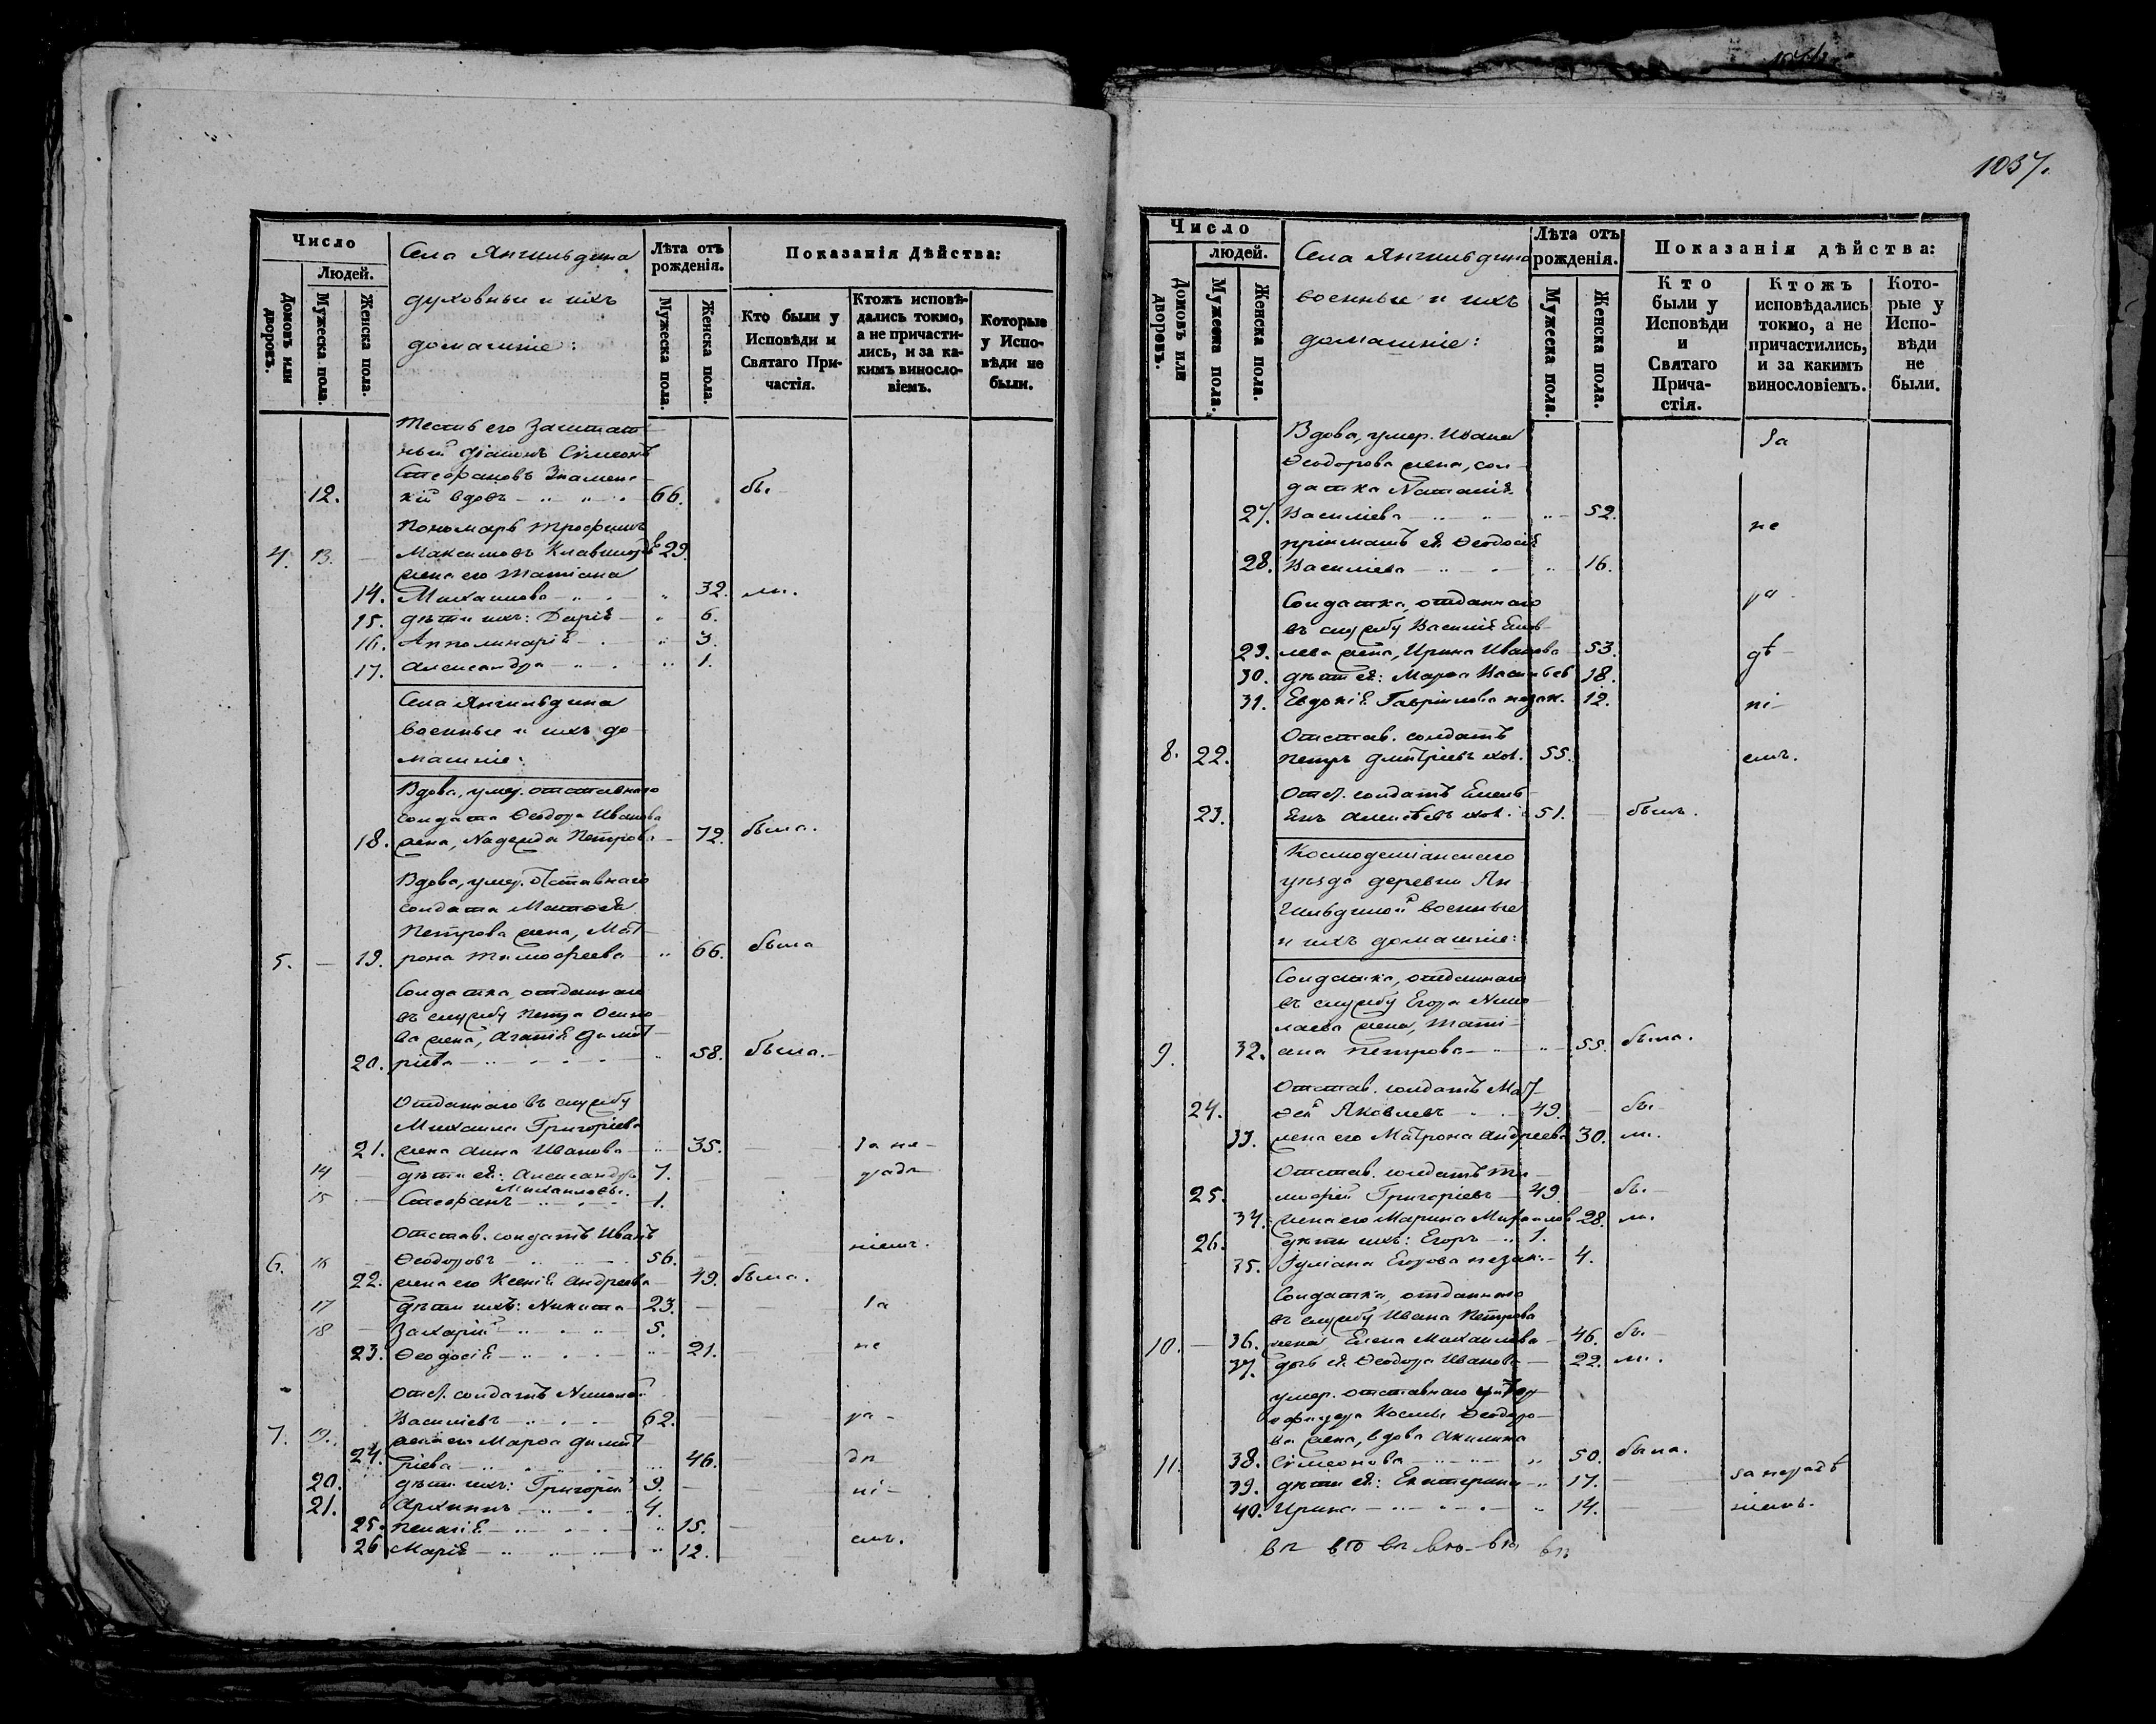 1037.
Число
Людей.
Домовъ или дворовъ.
Мужеска пола.
Женска пола.
Села Янгильдина
духовные и ихъ
домашніе:
Лѣта отъ рожденія.
Мужеска пола.
Женска пола.
Показанія Дѣйства:
Кто были у Исповѣди и Святаго Причастія.
Ктожъ исповѣдались токмо, а не причастились, и за какимъ винословіемъ.
Которые у Исповѣди не были.
Тесть его Заштат
ный діаконъ Сімеонъ
Стефановъ Знамен
12. кій вдовъ 66. бы
Пономарь Трофимъ
4. 13. Максимовъ 29.
жена его Татіана
14. Михаилова 32. ли.
15. дѣти ихъ: Дарія 6.
16. Апполинарія 3.
17. Александра 1.
Села Янгильдина
военные и ихъ до
машніе:
Вдова, умер. отставнаго
солдата Ѳеодора Иванова
18. жена, Надежда Петрова 72. была.
Вдова, умер. отставнаго
солдата Матѳея
Петрова жена, Мат
5. 19. рона Тимофеева 66. была
Солдатка, отданнаго
въ службу Петра Осипо
ва жена, Агаѳія Димит
20. ріева 58. была.
Отданнаго въ службу
Михаила Григоріева
21. жена Анна Иванова 35. За не
14 дѣти ея: Александръ 7. радѣ
Михаиловы.
15 Стефанъ 1.
Отстав. солдатъ Иванъ
6. 16 Ѳеодоровъ 56. ніемъ.
22. жена его Ксенія Андреева 49. была.
17 дѣти ихъ: Никита 23. За
18 Захарій 5.
23. Ѳеодосія 21. не
Отст. солдатъ Николай
7. 19. Василіевъ 62. ра
жена его Марѳа Димит
24. ріева 46. дѣ
20. дѣти ихъ: Григорій 9. ні
21. Архиппъ 4.
25. Пелагія 15. емъ.
26 Марія 12.
Число
людей.
Домовъ или дворовъ.
Мужеска пола.
Женска пола.
Села Янгильдина
военные и ихъ
домашніе:
Лѣта отъ рожденія.
Мужеска пола.
Женска пола.
Показанія дѣйства:
Кто были у Исповѣди и Святаго Причастія.
Ктожъ исповѣдались токмо, а не причастились, и за какимъ винословіемъ.
Которые у Исповѣди не были.
Вдова, умер. Ивана За
Ѳеодорова жена, сол
датка Наталія
27. Василіева 52. не
пріимашъ ея Ѳеодосія
28. Василіева 16.
Солдатка, отданнаго ра
въ службу Василія
29. жена, Ирина Иванова 53. дѣ
30. дѣти ея: Марѳа 18.
31. Евдокія Гавріилова незак. 12. ні
Отстав. солдатъ
8. 22. Петръ Дмитріевъ хол. 55. емъ.
Отст. солдатъ Емель
23. янъ Алексѣевъ хол. 51. былъ.
Космодеміанскаго
уѣзда деревни Ян
гильдиной военные
и ихъ домашніе:
Солдатка, отданнаго
въ службу Егора Нико
лаева жена, Таті
9. 32. ана Петрова 55. была.
Отстав. солдатъ Мат
24. ѳей Яковлевъ 49. бы
33. жена его Матрона Андреева 30. ли.
Отстав. солдатъ Ти
25. мофей Григоріевъ 49. бы
34. жена его Марина Михаилова 28. ли.
26. дѣти ихъ: Егоръ 1.
35. Іуліана Егорова незак. 4.
Солдатка, отданнаго
въ службу Ивана Петрова
10. 36. жена Елена Михаилова 46. бы
37. дочь ея Ѳеодора Иванова 22. ли.
умер. отставнаго унтеръ
офицера Космы Ѳеодоро
ва жена, вдова Акилина
11. 38. Сімеонова 50. была.
39. дѣти ея: Екатерина 17. за нерадѣ
40. Ирина 14. ніемъ.